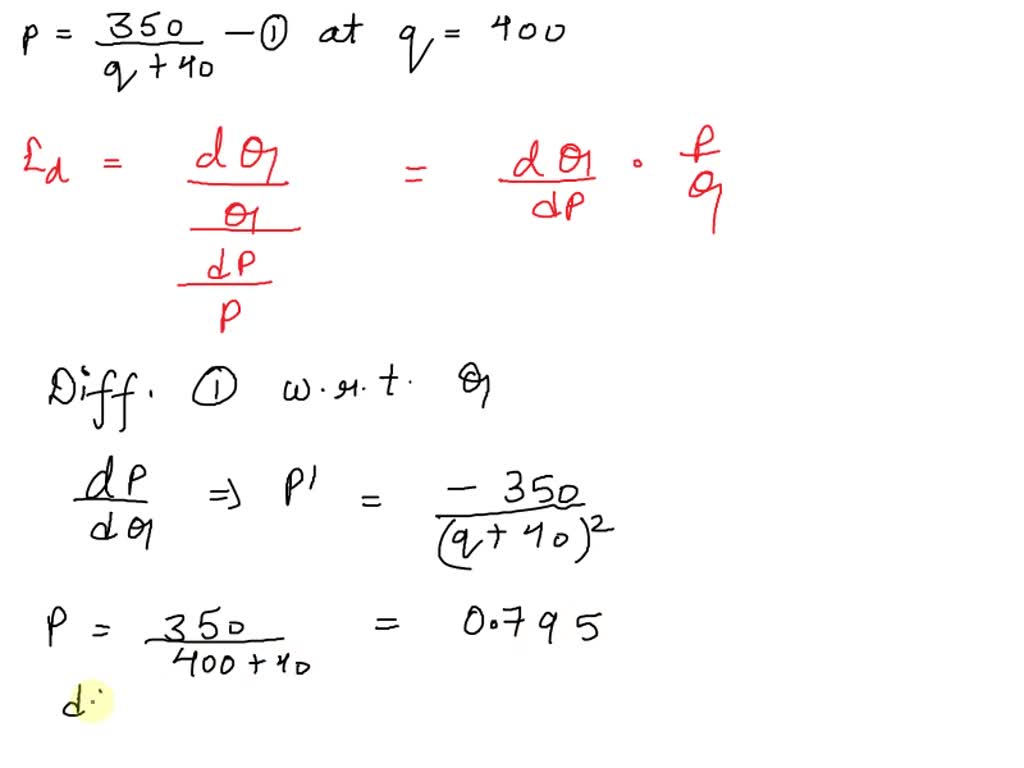 p = 350/(q + 40) — ① at q = 400
Ed = (dQ/Q)/(dP/P) = dQ/dP · P/Q
Diff. ① w.r.t. Q
dP/dQ ⇒ P' = - 350/(q + 40)²
P = 350/(400 + 40) = 0.795
d.